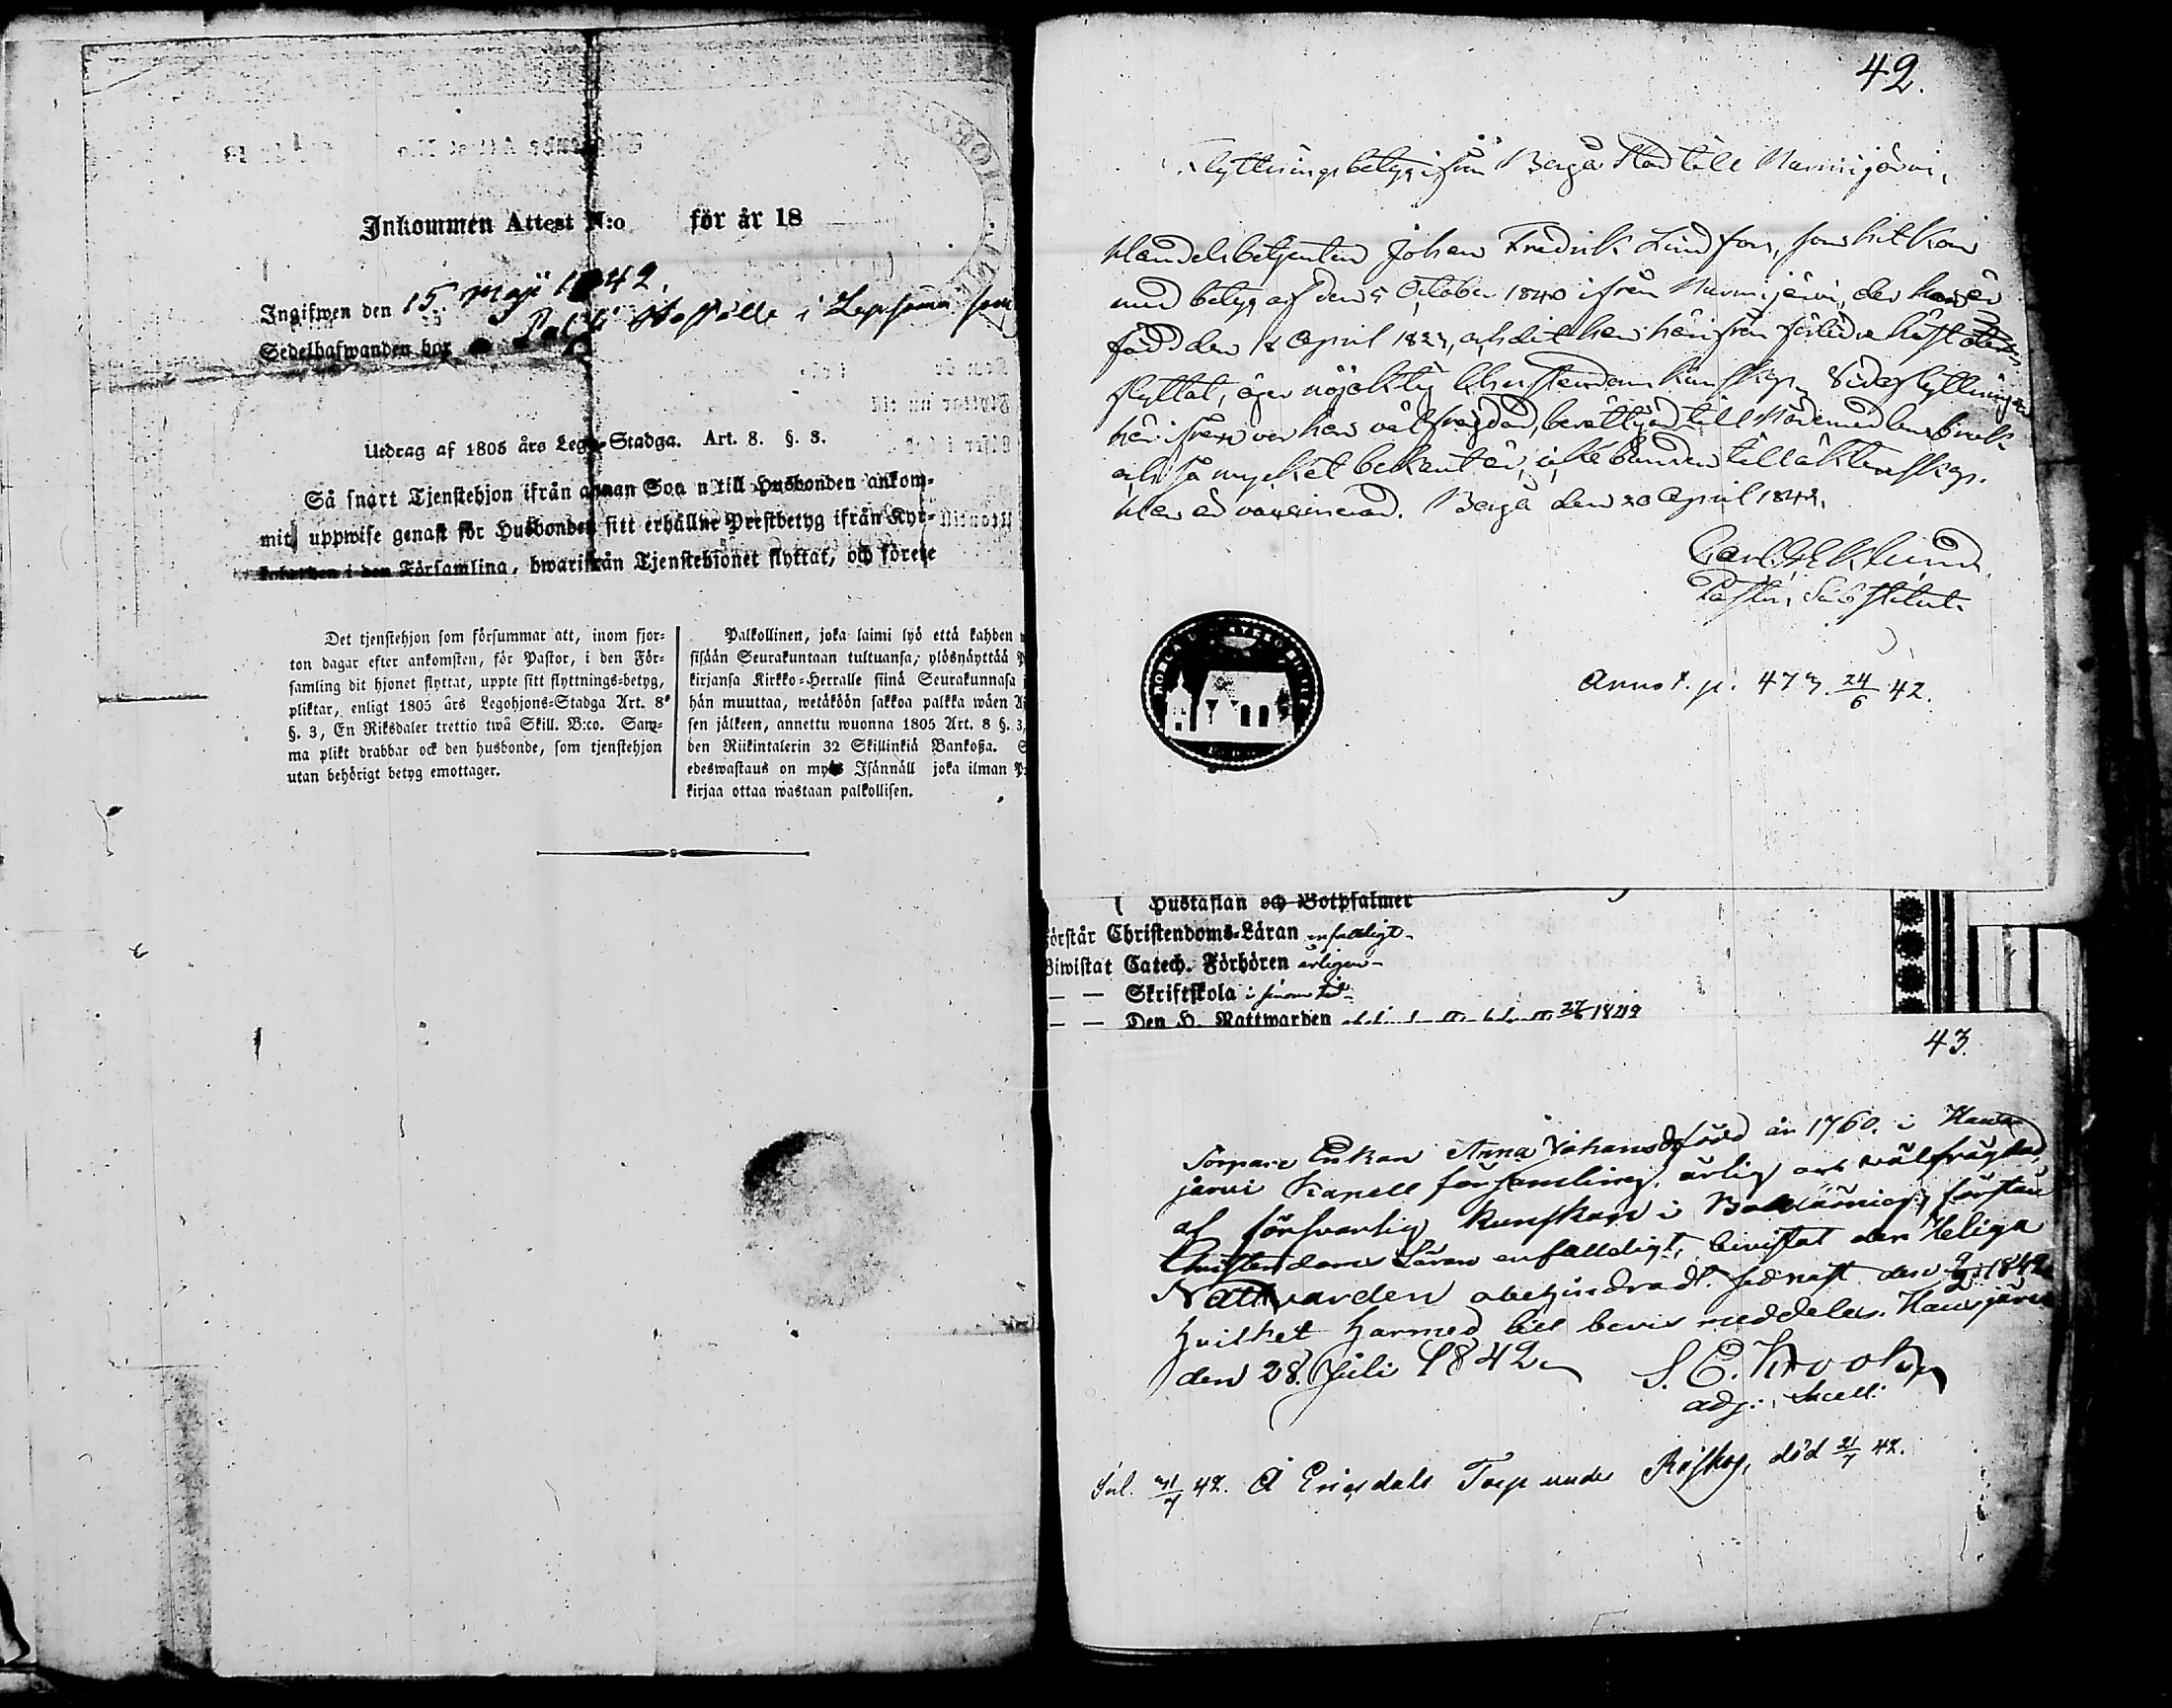 Inkommen Attest N:o för år 18
Ingifwen den 15 Maji 1842.
Sedelhafwanden bor i Lepsama som
Utdrag af 1805 års Lego-Stadga. Art. 8. §. 3.
Så snart Tjenstehjon ifrån annan Soa n till Husbonden ankom-
mit, uppwise genast för Husbonden sitt erhållne Prestbetyg ifrån Kyr-
i den Församling, hwarifrån Tjenstehjonet flyttat, och förete
Det tjenstehjon som försummar att, inom fjor-
ton dagar efter ankomsten, för Pastor, i den För-
samling dit hjonet flyttat, uppte sitt flyttnings-betyg,
pliktar, enligt 1805 års Legohjons-Stadga Art. 8
§. 3, En Riksdaler trettio twå Skill. B:co. Sam-
ma plikt drabbar ock den husbonde, som tjenstehjon
utan behörigt betyg emottager.
Palkollinen, joka laimi lyö että kahden
sisään Seurakuntaan tultuansa, ylösnäyttää
kirjansa Kirkko-Herralle siinä Seurakunnasa
hän muuttaa, wetäköön sakkoa palkka wäen
sen jälkeen, annettu wuonna 1805 Art. 8 §. 3,
den Riikintalerin 32 Skillinkiä Bankoßa.
edeswastaus on myös Isännäll joka ilman
kirjaa ottaa wastaan palkollisen.
42.
Flyttningsbetyg ifrån Borgå Stad till Nurmijärvi.
Handelsbetjenten Johan Fredrik Lindfors, som hit kom
med betyg af den 5 October 1840 ifrån Nurmijärvi, der han är
född den 18 April 182, och dit han härifrån förledne höst åter
flyttat, äger nöjaktig Christendoms kunskap. Vid flyttningen
härifrån var han välfrägdad, berättigad till Nådemedlens bruk
och så mycket bekant är, icke bunden till äktenskap.
Han är vaccinerad. Borgå den 20 April 1842.
Carl Eklund
Pastor, Substitut.
Annot. p. 473. 24/6 42.
Hustaflan och Botpsalmer
Förstår Christendoms-Läran enfaldigt
Biwistat Catech. Förhören årligen
— — Skriftskola i sinom tid
— — Den H. Nattwarden 1842
43.
Torpare Enkan Anna Johansdr född år 1760. i Haus-
järvi Kapell församling, ärlig och välfrägdad,
af försvarlig kunskap i Bokläsning, förstår
Christendoms Läran enfalldigt, bevistat den Heliga
Nattvarden obehindradt sednast den 1842
hvilket härmed till bevis meddelas. Hausjärvi
den 28. Juli 1842. S. E. Krook
adj: Sacell:
Inl. 31/7 42. Å Ericsdals Torp under Röskog, död 21/7 42.